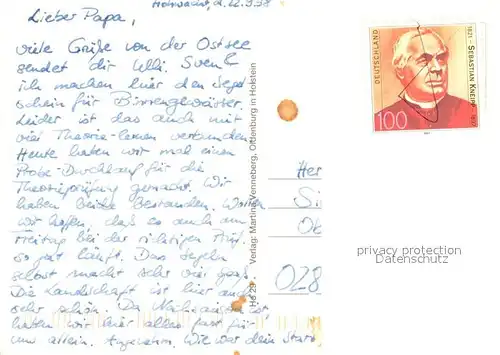 Hohwacht, d. 22.9.98
Lieber Papa,
viele Grüße von der Ostsee
sendet dir Ulli. Sven &
ich machen hier den Segel
schein für Binnengewässer.
Leider ist das auch mit
viel Theorie-lernen verbunden.
Heute haben wir mal einen
Probe-Durchlauf für die
Theorieprüfung gemacht. Wir
haben beide bestanden.
wir hoffen, daß es auch am
Freitag bei der richtigen Prüf.
so gut läuft. Das Segeln
selbst macht sehr viel Spaß.
Die Landschaft ist hier auch
sehr schön. Da Nachsaison ist
haben wir hier alles fast für
uns allein. Angenehm. Wie war dein Start
He 29 Verlag: Martina Venneberg, Oldenburg in Holstein
DEUTSCHLAND
1821 - SEBASTIAN KNEIPP - 1897
100
Her
Si
Ob
028
privacy protection
Datenschutz